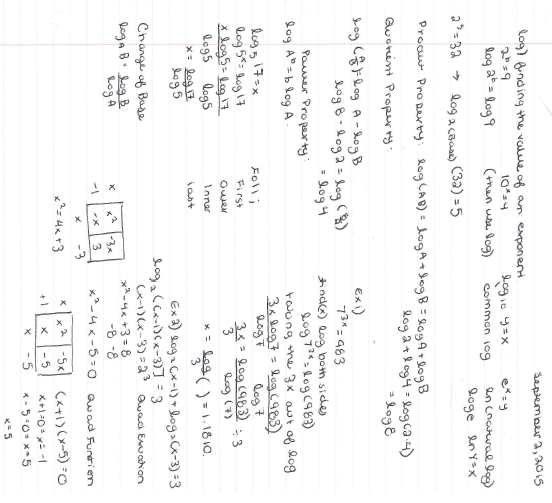 September 2, 2015
log) finding the value of an exponent
2ᵇ=9 10ˣ=y log₁₀ y=x eˣ=y
log 2ᵇ=log 9 (then use log) common log ln (natural log)
logₑ ln y=x
2⁵=32 → log₂(Base) (32)=5
Product Property: log(AB) = logA + logB = logA+logB
log2+log4 = log(2·4)
= log8
Quotient Property:
log(A/B) = log A - log B
log8 - log2 = log(8/2)
= log4
Power Property:
log Aᵇ = b log A.
log₅17=x
log5ˣ=log17
x log5=log17
log5 log5
x = log17
log5
Change of Base
log_A B = log B
log A
Ex1)
7³ˣ=983
find(x) log both sides
log7³ˣ=log(983)
taking the 3x out of log
3x log7 = log(983)
log7 log7
3x = log(983) ÷3
3 log(7)
x = log( ) = 1.1810.
3
Foil;
First
Outer
Inner
last
Ex2) log₂(x-1)+log₂(x-3)=3
log₂((x-1)(x-3))=3
(x-1)(x-3)=2³ Quad Equation
x²-4x+3=8
-8 -8
x²-4x-5=0 Quad Function
x x² -3x
-1 -x 3
x -3
x²-4x+3
x x² -5x
+1 x -5
x -5
(x+1)(x-5)=0
x+1=0=x=-1
x-5=0=x=5
x=5